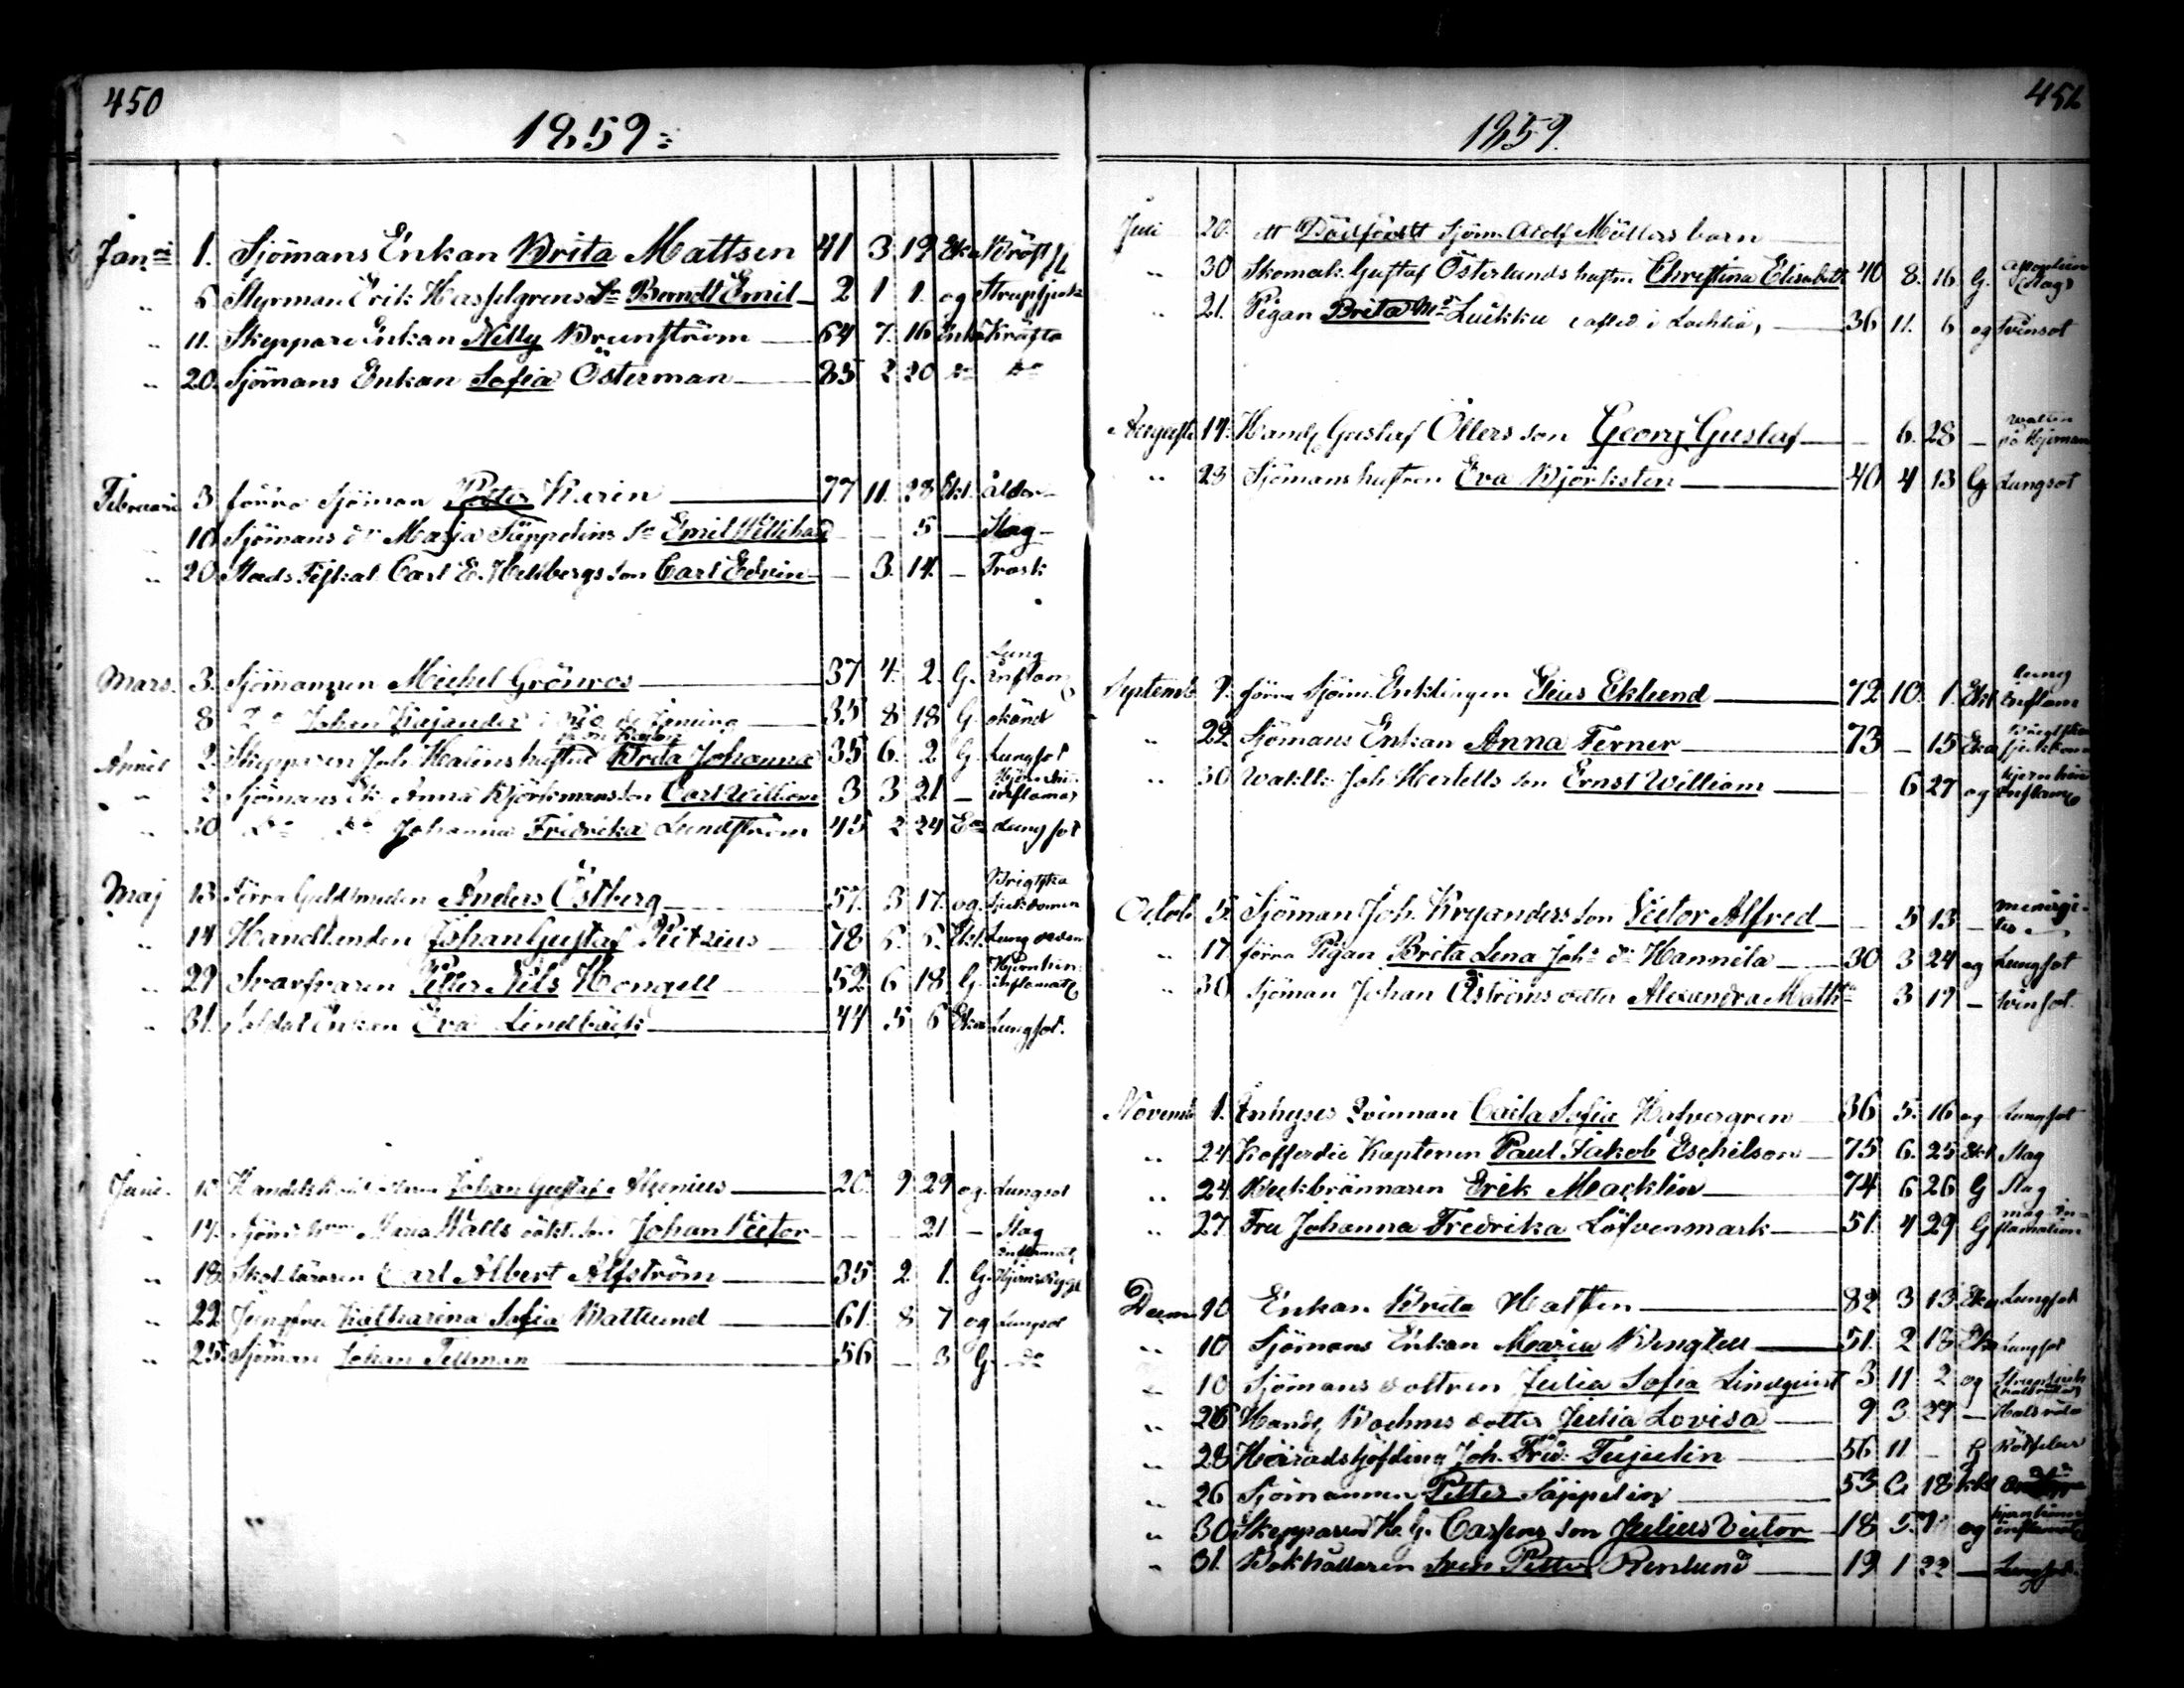 450
1859
Janri 1. Sjömans Enkan Brita Mattsen 41 3 19 Eka Bröst
" 6 Styrman Erik Hasselgrens Sn Berndt Emil 2 1 1. og Strupsjuk
" 11. Skeppare Enkan Nelly Brunström 64 7. 16 Enka Kräfta
" 20. Sjömans Enkan Sofia Österman 85 2 20 Do Do
Februari 3 förra Sjöman Petter Karin 77 11. 28 Ekl. ålder
10 Sjömans dr Maja Säppelins Sn Emil Willehad — — 5 — Slag
" 20. Stads Fiskal Carl E. Hellbergs son Carl Edvin — 3. 14. — Trosk
Mars. 3. Sjömannen Michel Grönroos 37 4. 2. G. Lung Inflam
8 Do Johan Kyjander 35 8 18 G. okänd
April 2. Skepparen Joh. Malins hustru Brita Johanna 35 6. 2 G. Lungsot
" 2 Sjömans Ek. Anna Björkmans son Carl William 3 3 21 — Hjern inflama
" 30 Do Do Johanna Fridrika Lundström 45 2 24 Ea Lungsot
Maj 13. Förra Guldsmeden Anders Östberg 57. 3 17. og. Brigtska Sjukdomen
" 14 Handlanden Johan Gustaf 78 6. 6. Ekl. Lung
" 29 Svarfvaren Petter Nils Hongell 52 6 18 G. Hjernhin: inflamat
" 31. Soldat Enkan Eva Lindbäck 44 5 6 Eka Lungsot.
Juni. Johan Gustaf Alcenius 20. 9 29 og. Lungsot
" 17. Maria Walls oäkt. son Johan Victor — — 21 — Slag
" 18. Skol läraren Carl Albert Alfström 35 2 1. G. Inflamat Hjern
" 22 Jungfru Katharina Sofia Wattlund 61. 8 7 og Lungsot
" 25. Sjöman Johan Tellman 56 — 3 G. Do
451
1859.
Juli 20. ett Dödfödt Sjöm. Adolf Möllers barn
" 30 Skomak. Gustaf Österlunds hustru Christina Elisabeth 40 8. 16 G. (Slag)
" 21. Pigan Brita Luikku (afled i Lochtå) 36 11. 6 og Tvinsot
Augusti 14. Handl Gustaf Öllers son Georg Gustaf — 6. 28 —
" 23 Sjömans hustrun Eva Björksten 40 4 13 G Lungsot
Septemb. 9. förra Sjöm. Enklingen Elias Eklund 72 10. 1. Ekl Lung Inflam
" 22 Sjömans Enkan Anna Ferner 73 — 15 Eka
" 30 Joh. Herletts son Ernst William 6 27 og Hjernhin inflam
Octob 5. Sjöman Joh. Kryanders son Victor Alfred — 5 13 — meningi-tis
" 17 förra Pigan Brita Lena Johs dr Hannila 30 3 24 og Lungsot
" 30 Sjöman Johan Åströms dotter Alexandra Math. 3 17 — Tvinsot.
Novemb 1. Inhyses Qvinnan Caisa Sofia Hafvergren 36 5. 16 og Lungsot
" 24. Kofferdie Kaptenen Paul Jakob Eschilson 75 6. 25 Ekl Slag
" 24 Beckbrännaren Erik Macklin 74 6 26 G Slag
" 27. Fru Johanna Fredrika Löfvenmark 51. 4 29 G mag. in-flamation
Decem 10 Enkan Brita Hatten 82 3 13. Eka Lungsot
" 10 Sjömans Enkan Maria Bengtell 51. 2 18 Eka Lungsot
" 10 Sjömans dottren Julia Sofia Lindqvist 3 11 2 og
" 26 Handl Boehms dotter Julia Lovisa 9 3. 27 —
" 28 Häradshöfding Joh. Fred. Tujulin 56 11 — G Rötfeber
" 26 Sjömannen Petter Säppelin 53 18 Ekl
" 30 Skepparen K. G. Cassens son Julius Victor 18 5. og hjernhinne inflamat
" 31. Bokhållaren Sven Petter Renlund 19 1 22 — Lungsot.